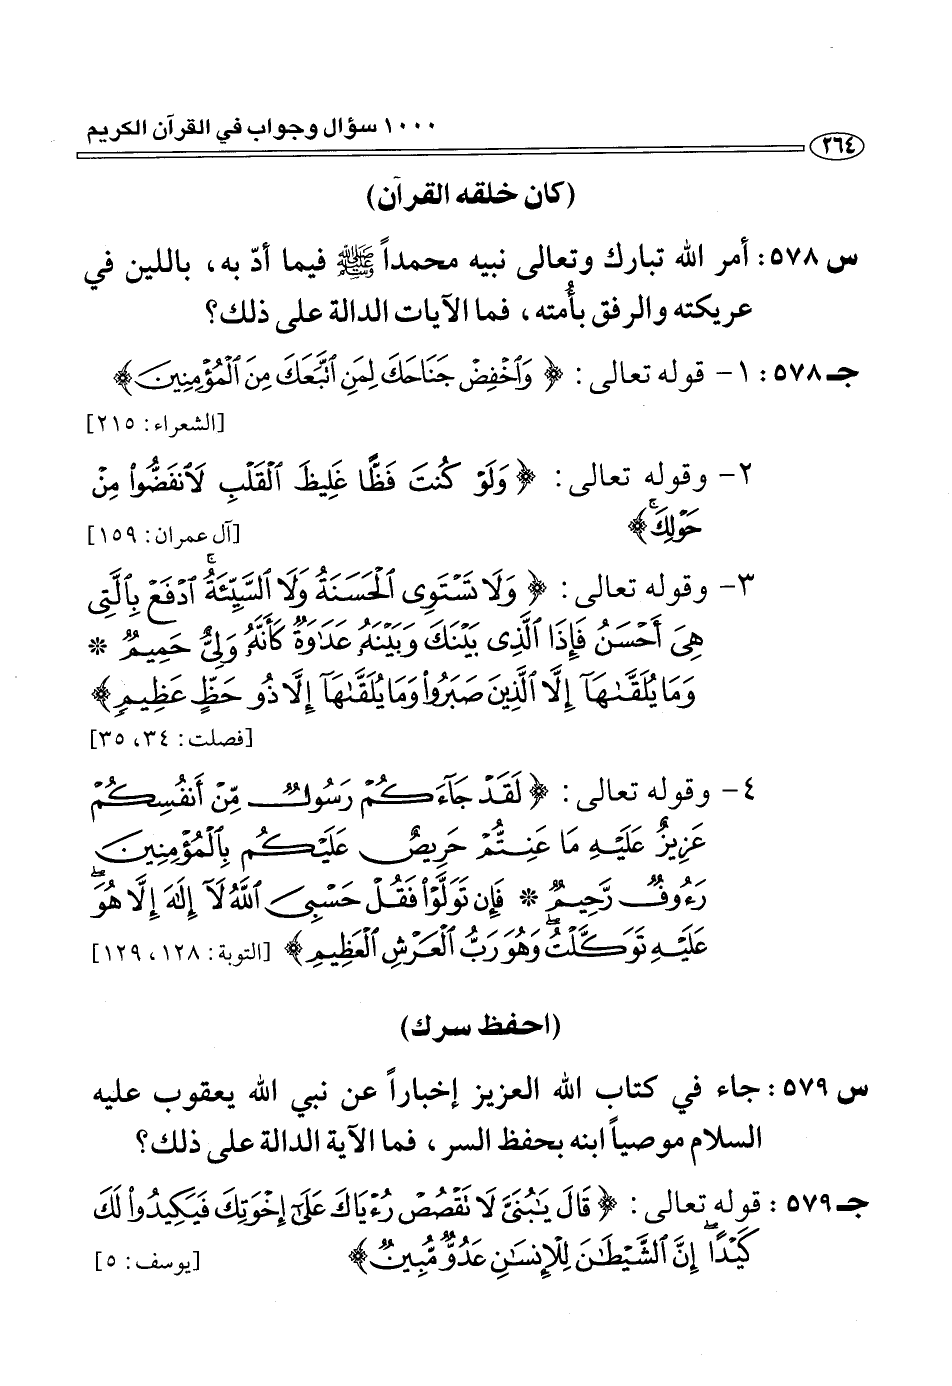 ١٠٠٠ سؤال وجواب في القرآن الكريم
٢٦٤
(كان خلقه القرآن)
س ٥٧٨: أمر الله تبارك وتعالى نبيه محمداً ﷺ فيما أدّ به، باللين في
عريكته والرفق بأُمته، فما الآيات الدالة على ذلك؟
جـ ٥٧٨: ١- قوله تعالى: ﴿وَٱخْفِضْ جَنَاحَكَ لِمَنِ ٱتَّبَعَكَ مِنَ ٱلْمُؤْمِنِينَ﴾
[الشعراء: ٢١٥]
٢- وقوله تعالى: ﴿وَلَوْ كُنتَ فَظًّا غَلِيظَ ٱلْقَلْبِ لَٱنفَضُّوا۟ مِنْ
حَوْلِكَۖ﴾ [آل عمران: ١٥٩]
٣- وقوله تعالى: ﴿وَلَا تَسْتَوِى ٱلْحَسَنَةُ وَلَا ٱلسَّيِّئَةُۚ ٱدْفَعْ بِٱلَّتِى
هِىَ أَحْسَنُ فَإِذَا ٱلَّذِى بَيْنَكَ وَبَيْنَهُۥ عَدَٰوَةٌ كَأَنَّهُۥ وَلِىٌّ حَمِيمٌ *
وَمَا يُلَقَّىٰهَآ إِلَّا ٱلَّذِينَ صَبَرُوا۟ وَمَا يُلَقَّىٰهَآ إِلَّا ذُو حَظٍّ عَظِيمٍ﴾
[فصلت: ٣٤، ٣٥]
٤- وقوله تعالى: ﴿لَقَدْ جَآءَكُمْ رَسُولٌ مِّنْ أَنفُسِكُمْ
عَزِيزٌ عَلَيْهِ مَا عَنِتُّمْ حَرِيصٌ عَلَيْكُم بِٱلْمُؤْمِنِينَ
رَءُوفٌ رَّحِيمٌ * فَإِن تَوَلَّوْا۟ فَقُلْ حَسْبِىَ ٱللَّهُ لَآ إِلَٰهَ إِلَّا هُوَۖ
عَلَيْهِ تَوَكَّلْتُۖ وَهُوَ رَبُّ ٱلْعَرْشِ ٱلْعَظِيمِ﴾ [التوبة: ١٢٨، ١٢٩]
(احفظ سرك)
س ٥٧٩: جاء في كتاب الله العزيز إخباراً عن نبي الله يعقوب عليه
السلام موصياً ابنه بحفظ السر، فما الآية الدالة على ذلك؟
جـ ٥٧٩: قوله تعالى: ﴿قَالَ يَٰبُنَىَّ لَا تَقْصُصْ رُءْيَاكَ عَلَىٰٓ إِخْوَتِكَ فَيَكِيدُوا۟ لَكَ
كَيْدًاۖ إِنَّ ٱلشَّيْطَٰنَ لِلْإِنسَٰنِ عَدُوٌّ مُّبِينٌ﴾ [يوسف: ٥]